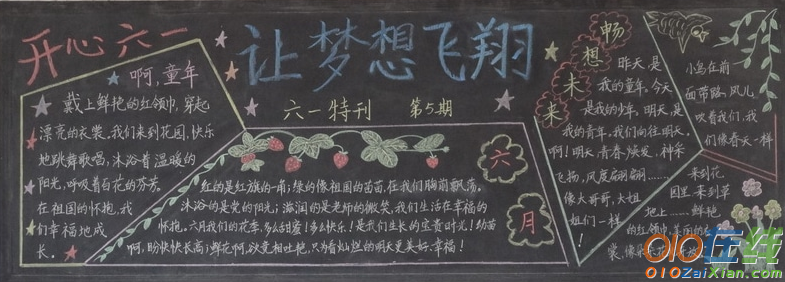 开心六一
让梦想飞翔
六一特刊 第5期
啊,童年
戴上鲜艳的红领巾,穿起
漂亮的衣裳。我们来到花园,快乐
地跳舞歌唱,沐浴着温暖的
阳光,呼吸着百花的芬芳。
在祖国的怀抱,我
们幸福地成
长。
六月
红的是红旗的一角;绿的像祖国的苗苗,在我们胸前飘荡。
沐浴的是党的阳光;滋润的是老师的微笑,我们生活在幸福的
怀抱。六月我们的花季,多么甜蜜!多么快乐!是我们生长的宝贵时光!幼苗
啊,盼快快长高;鲜花啊,欲竞相吐艳,只为着灿烂的明天更美好、幸福!
畅想未来
昨天,是
我的童年。今天
是我的少年,明天,是
我的青年。我们向往明天,
啊!明天,青春焕发,神采
飞扬,风度翩翩……
像大哥哥,大姐
姐们一样
!
小鸟在前
面带路,风儿
吹着我们,我
们像春天一样
来到花
园里,来到草
地上……鲜艳
的红领巾,美丽的
裳,像
010在线
010ZaiXian.com